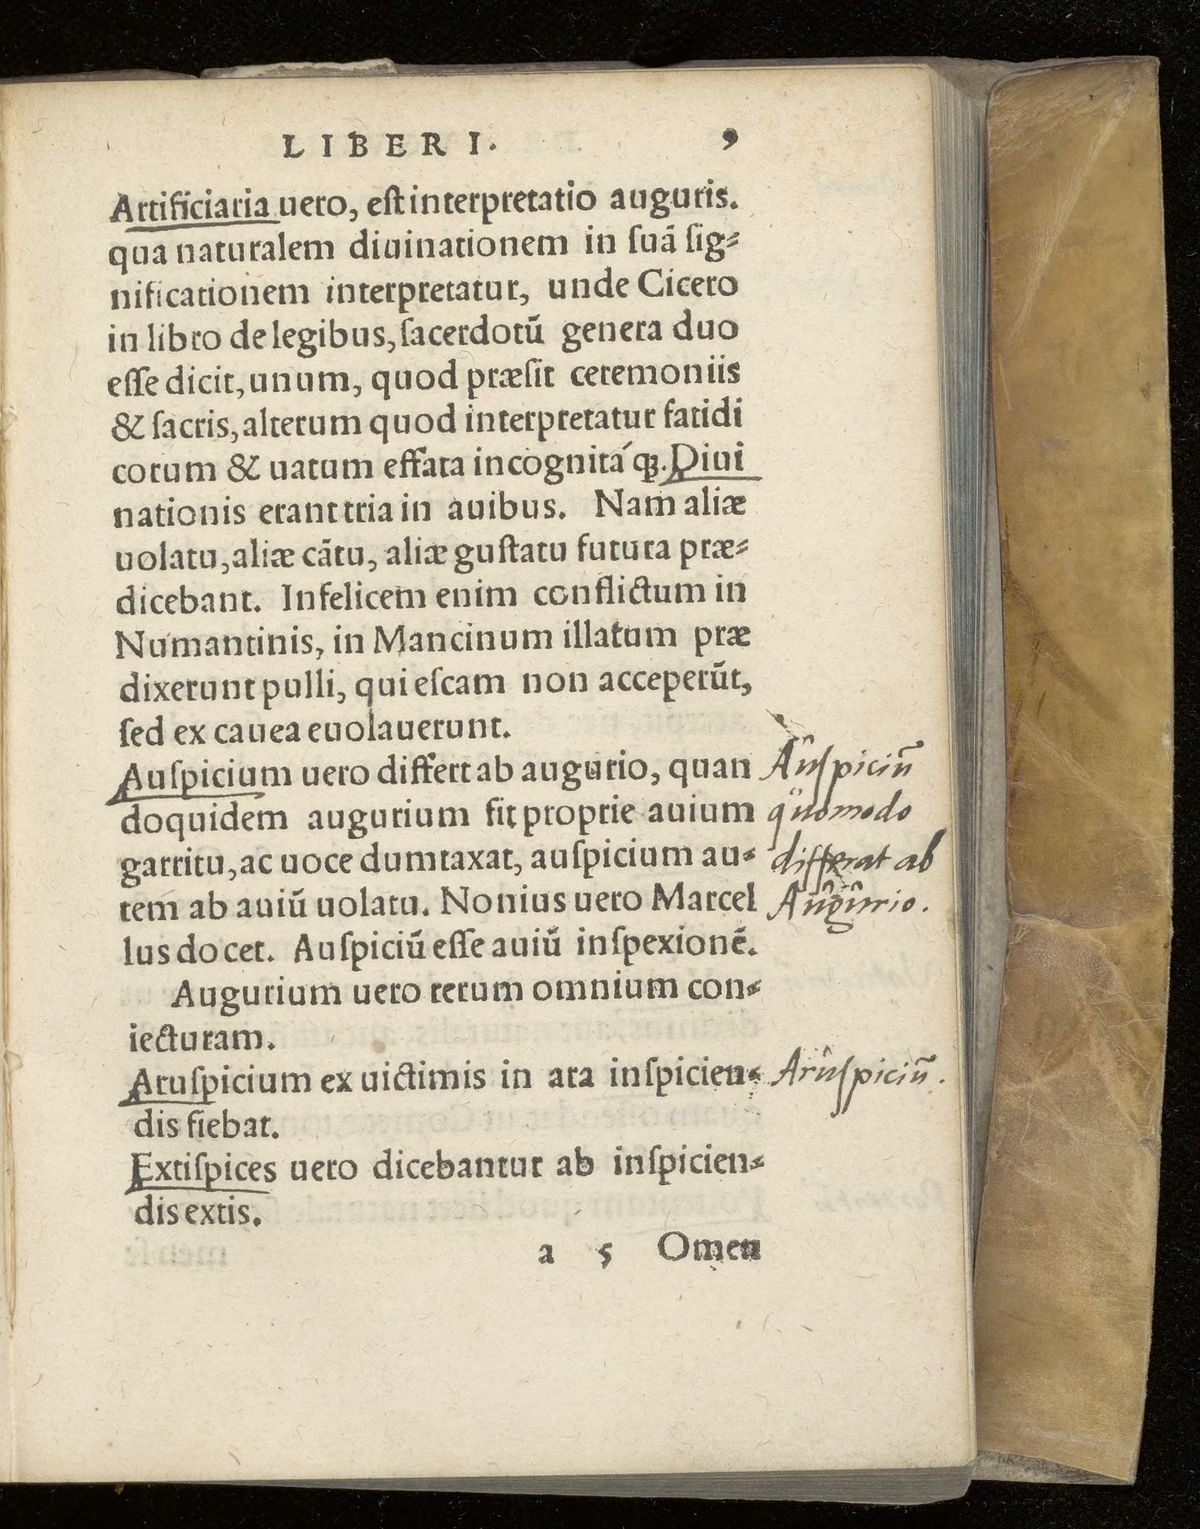 LIBER I. 9
Artificiaria uero, est interpretatio auguris.
qua naturalem diuinationem in suã sig-
nificationem interpretatur, unde Cicero
in libro de legibus, sacerdotũ genera duo
esse dicit, unum, quod præsit ceremoniis
& sacris, alterum quod interpretatur fatidi
corum & uatum effata incognitá q́ꝫ. Diui
nationis erant tria in auibus. Nam aliæ
uolatu, aliæ cãtu, aliæ gustatu futura præ-
dicebant. Infelicem enim conflictum in
Numantinis, in Mancinum illatum præ
dixerunt pulli, qui escam non acceperũt,
sed ex cauea euolauerunt.
Auspicium uero differt ab augurio, quan Auspiciũ
doquidem augurium fit proprie auium quomodo
garritu, ac uoce dumtaxat, auspicium au- differat ab
tem ab auiũ uolatu. Nonius uero Marcel Augurio.
lus docet. Auspiciũ esse auiũ inspexionẽ.
Augurium uero rerum omnium con-
iecturam.
Aruspicium ex uictimis in ara inspicien- Aruspiciũ.
dis fiebat.
Extispices uero dicebantur ab inspicien-
dis extis.
a 5 Omen